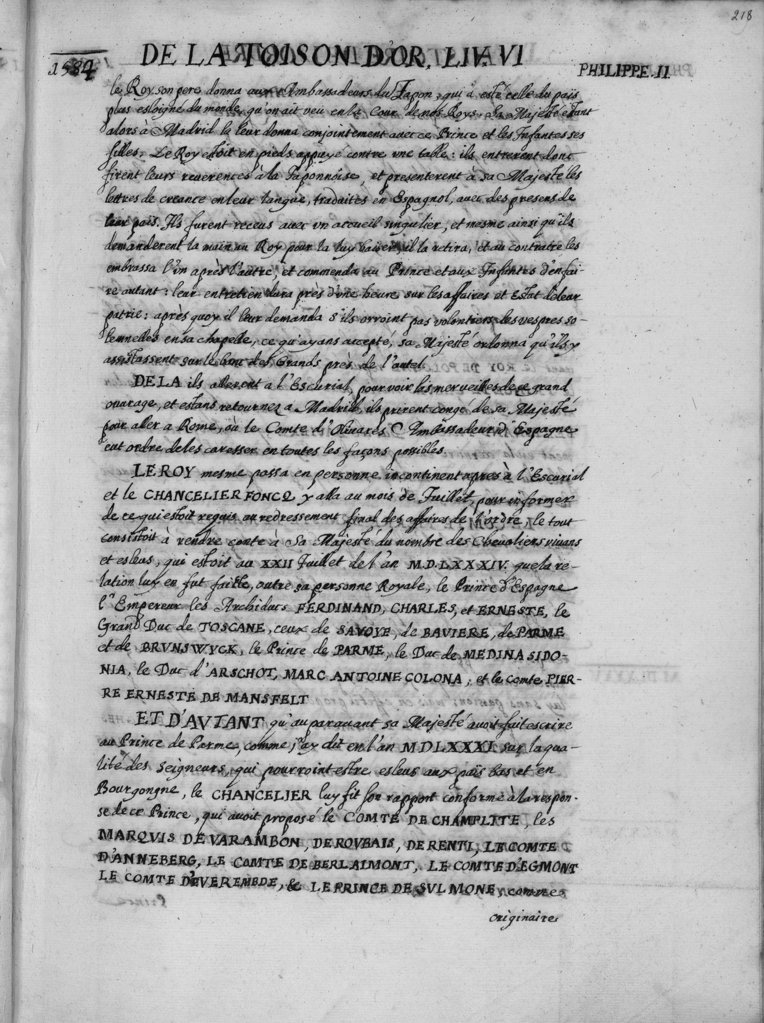 218
DE LA TOISON D'OR, LIV. VI
1584
PHILIPPE. II
le Roy son pere donna aux Ambassadeurs du Iapon, qui a esté celle du païs
plus esloigné du monde, qu'on ait veu en la Cour de nos Roys, Sa Majesté estant
alors à Madrid la leur donna conjointement avec ce Prince et les Infantes ses
filles, Le Roy estoit en pieds appuyé contre une table: ils entrerent donc
firent leurs reverences à la Japonnoise, et presenterent à sa Majesté les
lettres de creance en leur langue, traduites en Espagnol, avec des presens de
leur païs. Ils furent receus avec un accueil singulier, et mesme ainsi qu'ils
demanderent la main au Roy pour la luy baiser, il la retira, et au contraire les
embrassa l'un après l'autre, et commenda au Prince et aux Infantes d'en fai-
re autant: leur entretien dura près d'une heure sur les affaires et Estat de leur
patrie: après quoy il leur demanda s'ils orroint pas volontiers les vespres so-
lemnelles en sa chapelle, ce qu'ayans accepté, sa Majesté ordonna qu'ils y
assistassent sur le banc des Grands près de l'autel.
DE LA ils allerent a l'Escurial, pour voir les merveilles de ce grand
ouvrage, et estans retournez a Madrill, ils prirent congé de sa Majesté
pour aller a Rome, où le Comte d'Olivarès Ambassadeur d'Espagne
eut ordre de les caresser en toutes les façons possibles.
LE ROY mesme passa en personne incontinent apres à l'Escurial
et le CHANCELIER FONCQ y alla au mois de Juillet, pour informer
de ce qui estoit requis au redressement final des affaires de l'ordre, le tout
consistoit à rendre conte à Sa Majesté du nombre des Chevaliers vivans
et esleus, qui estoit au XXII Juillet de l'an M.D.LXXXIV. que la re-
lation luy en fut faitte, outre sa personne Royale, le Prince d'Espagne
l'Empereur les Archiducs FERDINAND, CHARLES, et ERNESTE, le
Grand Duc de TOSCANE, ceux de SAVOYE, de BAVIERE, de PARME
et de BRUNSWYCK, le Prince de PARME, le Duc de MEDINA SIDO-
NIA, le Duc d'ARSCHOT, MARC ANTOINE COLONA, et le comte PIER-
RE ERNESTE DE MANSFELT
ET D'AUTANT qu'auparavant sa Majesté avoit fait escrire
au Prince de Parme, comme j'ay dit en l'an MDLXXXI, sur la qua-
lité des Seigneurs, qui pourroint estre esleus aux païs bas et en
Bourgongne, le CHANCELIER luy fit son rapport conforme à la respon-
se de ce Prince, qui avoit proposé le COMTE DE CHAMPLITE, les
MARQUIS DE VARAMBON, DE ROUBAIS, DE RENTI, LE COMTE
D'ANNEBERG, LE COMTE DE BERLAIMONT, LE COMTE D'EGMONT
LE COMTE D'EVEREMBDE, & LE PRINCE DE SULMONE, comme
originaire